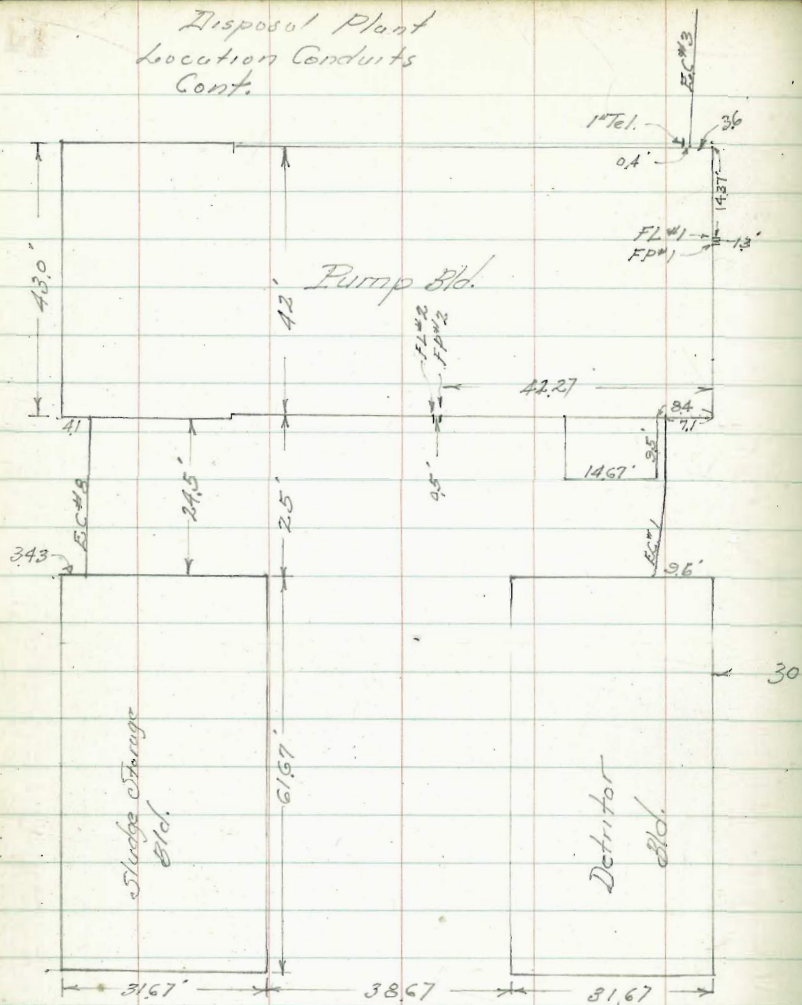 Disposal Plant
Location Conduits
Cont.
E.C.#3
1" Tel.
3.6
0.4'
14.37'
FL#1
FP#1
1.3'
43.0'
42'
Pump Bld.
FL#2
FP#2
42.27
4.1
8.4
7.1
9.5'
14.67'
0.5'
E.C.#8
24.5'
25'
E.C.#1
3.43
9.6'
30
61.67'
Sludge Storage
Bld.
Detritor
Bld.
31.67'
38.67
31.67